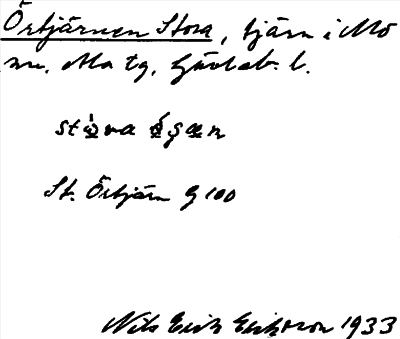 Örtjärnen Stora, tjärn i Mo
sn. Mo tg, Gävleb. l.
St. Örtjärn G 100
Nils Erik Eriksson 1933